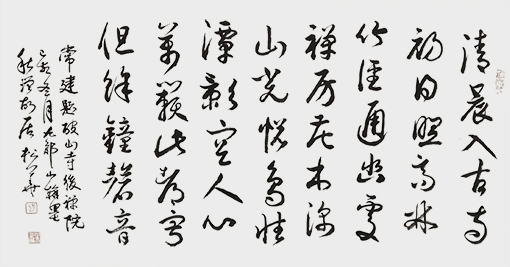 清晨入古寺
初日照高林
竹徑通幽處
禅房花木深
山光悦鳥性
潭影空人心
萬籟此都寂
但餘鐘磬音
常建題破山寺後禅院
冬月九郎山翰墨
居松